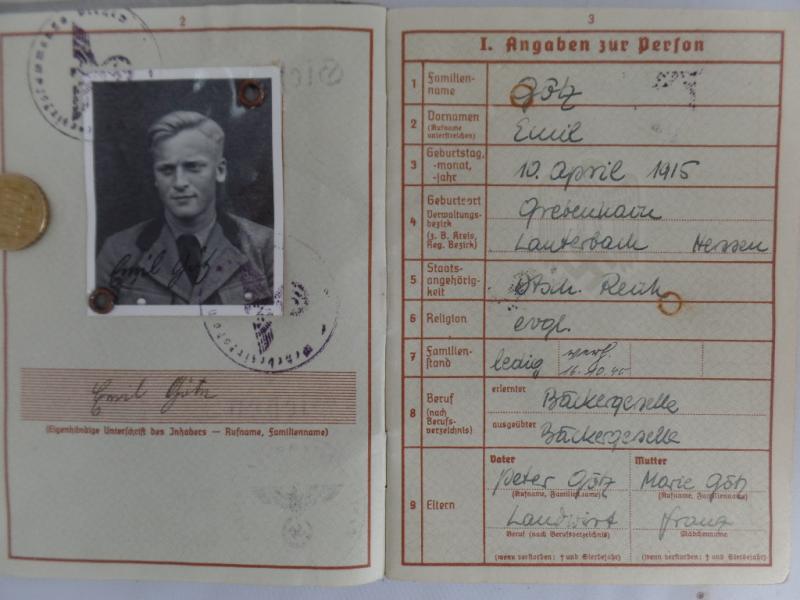 2
Emil Götz
Emil Götz
(Eigenhändige Unterschrift des Inhabers — Rufname, Familienname)
3
I. Angaben zur Person
1 Familien-
name
Götz
2 Vornamen
(Rufname
unterstreichen)
Emil
3 Geburtstag,
-monat,
-jahr
10. April 1915
4 Geburtsort
Verwaltungs-
bezirk
(z. B. Kreis,
Reg. Bezirk)
Grebenhain
Lauterbach Hessen
5 Staats-
angehörig-
keit
Dtsch. Reich
6 Religion
evgl.
7 Familien-
stand
ledig
verh.
16.10.40
8 Beruf
(nach
Berufs-
verzeichnis)
erlernter
Bäckergeselle
ausgeübter
Bäckergeselle
9 Eltern
Vater
Peter Götz
(Rufname, Familienname)
Landwirt
Beruf (nach Berufsverzeichnis)
(wenn verstorben: † und Sterbejahr)
Mutter
Marie Götz
(Rufname, Familienname)
Franz
Mädchenname
(wenn verstorben: † und Sterbejahr)